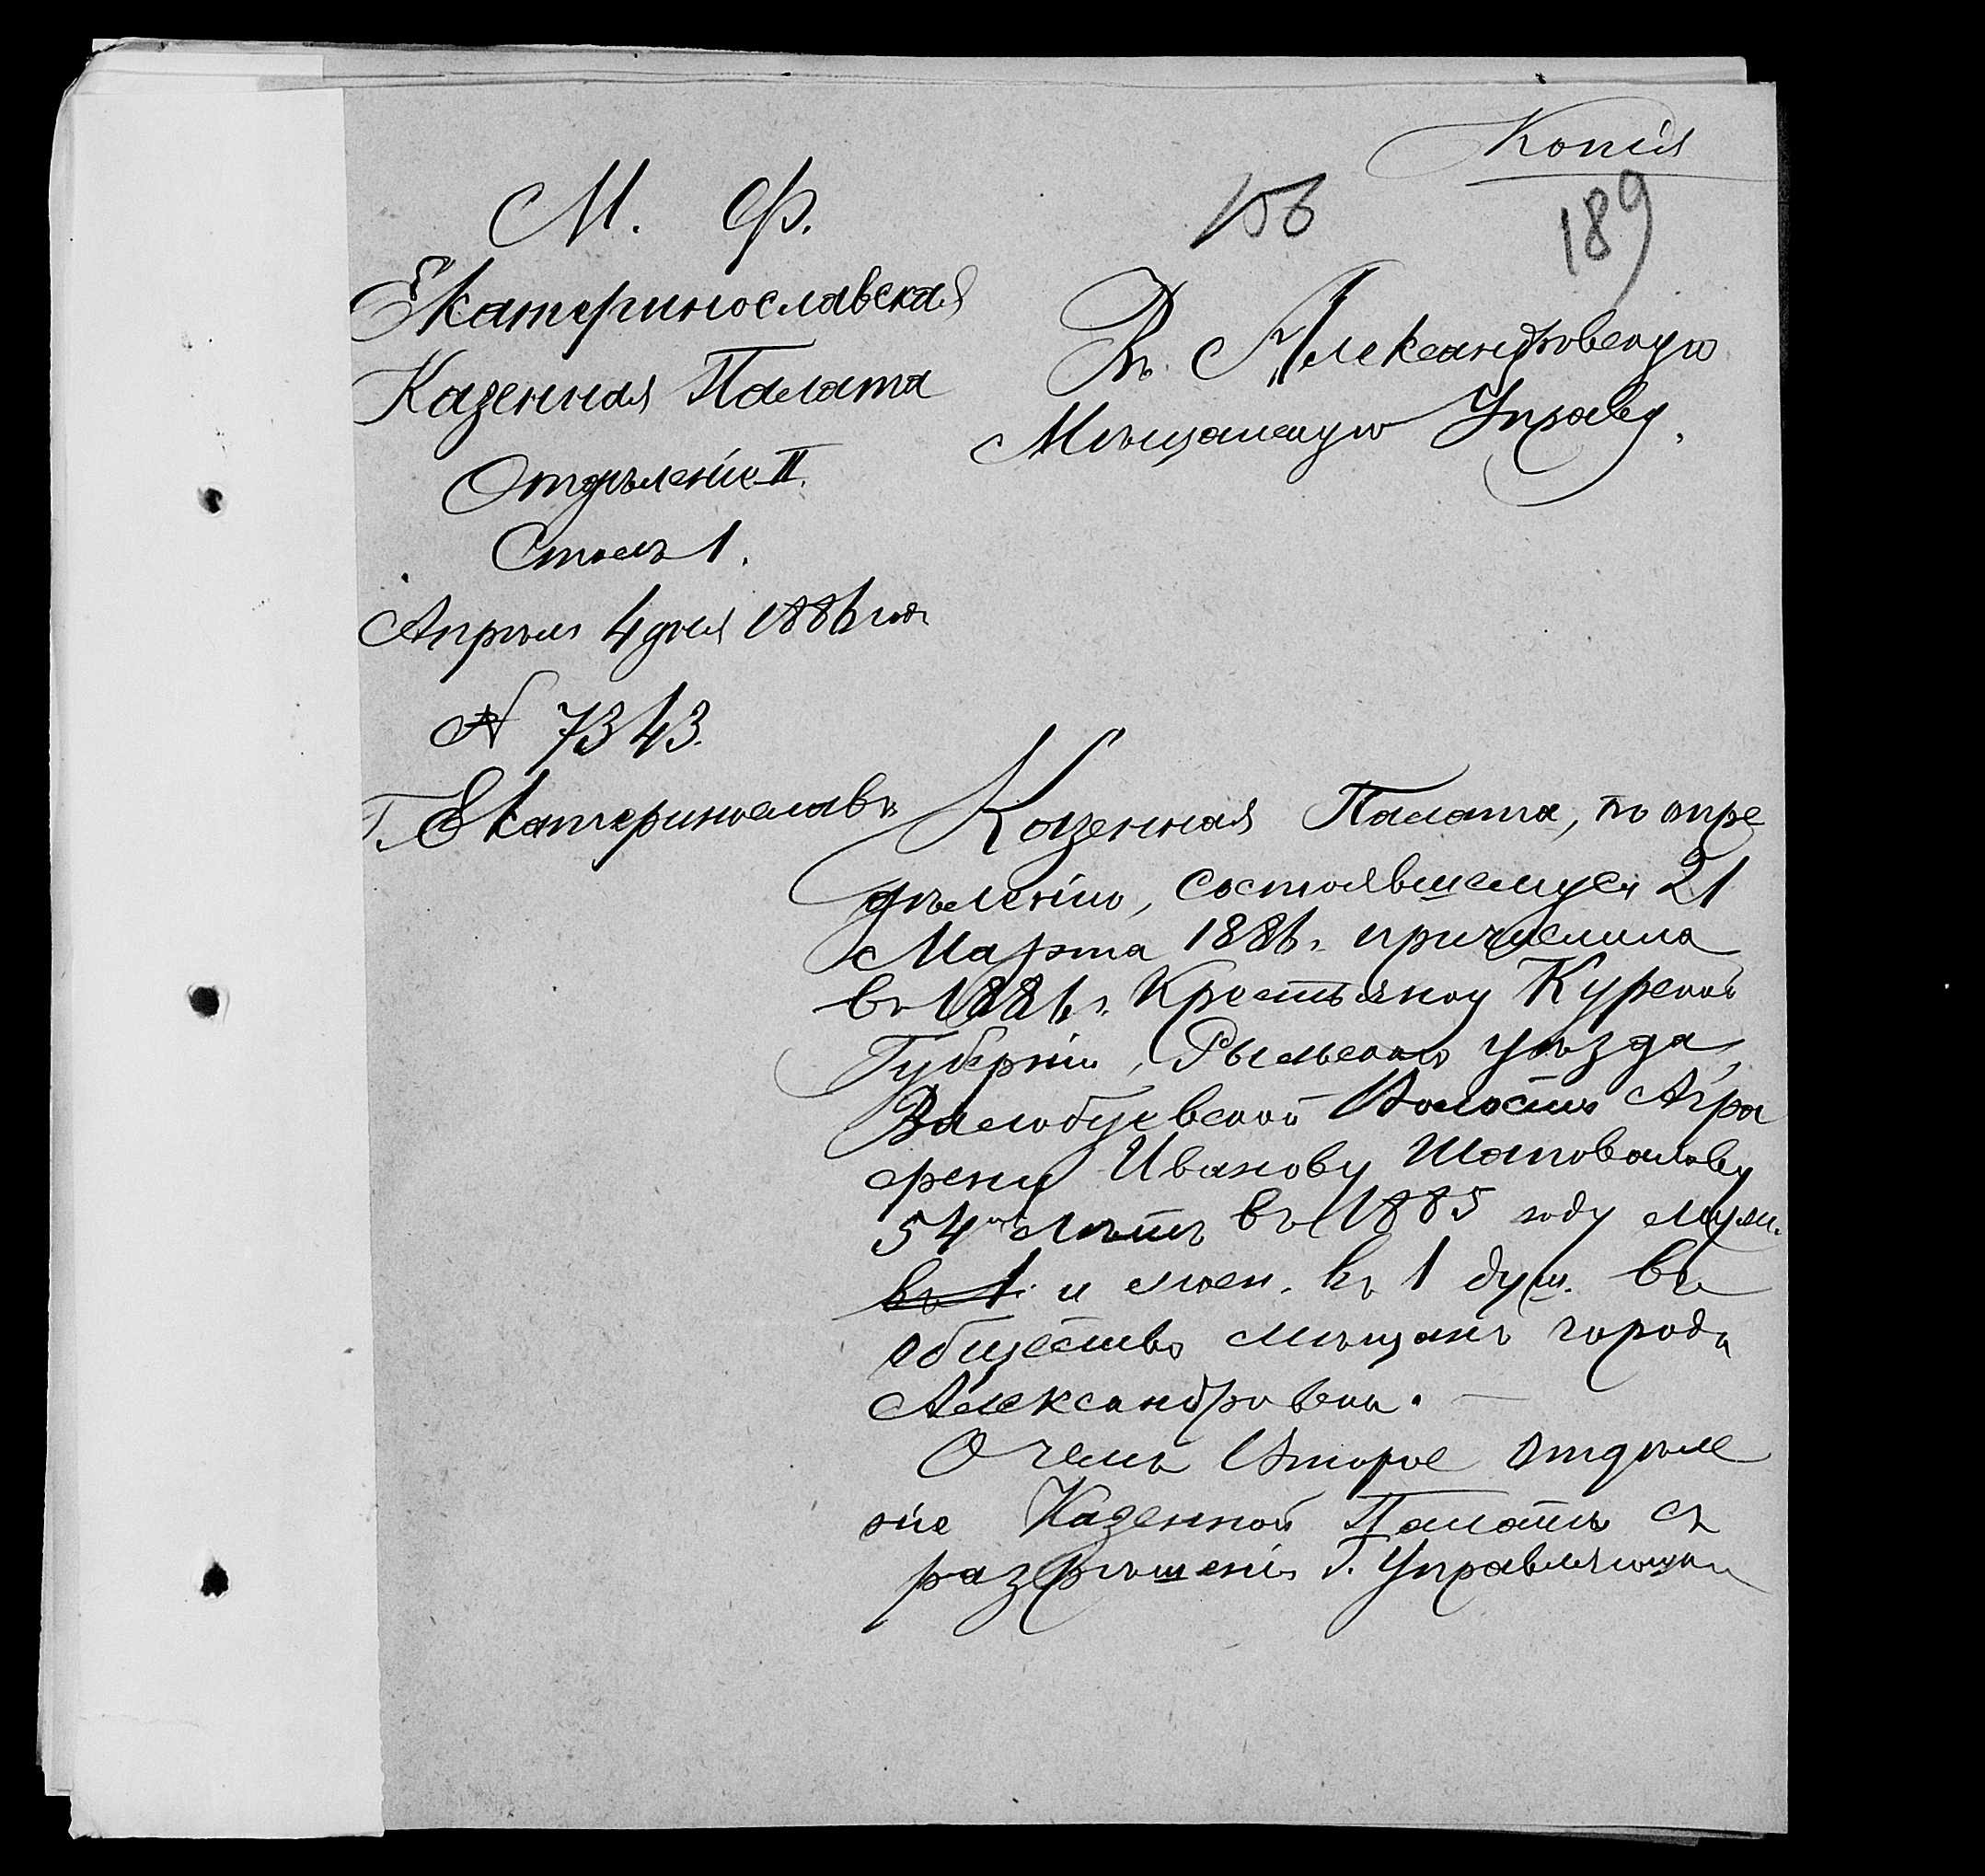 Копія
156
189
М. Ф.
Екатеринославская
Казенная Палата
Отдѣленіе II.
Столъ 1.
Апрѣля 4 дня 1886 года
№ 7343.
Г. Екатеринославъ
Въ Александровскую
Мѣщанскую Управу.
Казенная Палата, по опре
дѣленію, состоявшемуся 21
Марта 1886 г. причислила
въ 1886 г. Крестьянку Курской
Губерніи, Рыльскаго уѣзда,
Волости Агра
фену Иванову Шаповалову
54 лѣтъ въ 1885 году
въ 1. и жен. въ 1 душ. въ
общество мѣщанъ города
Александровска.
О чемъ Второе Отдѣле
ніе Казенной Палаты съ
разрѣшенія Г. Управляющаго